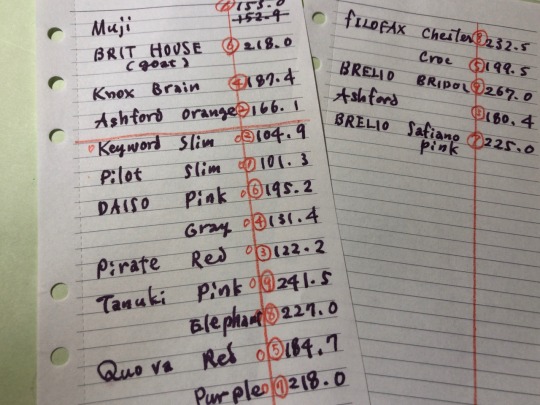 Muji ① 153.0
152.9
BRIT HOUSE ⑥ 218.0
(goat)
Knox Brain ④ 187.4
Ashford Orange ② 166.1
Keyword Slim ② 104.9
Pilot Slim ① 101.3
DAISO Pink ⑥ 195.2
Gray ④ 131.4
Pirate Red ③ 122.2
Tanuki Pink ⑨ 241.5
Elephant ⑧ 227.0
Quo va Red ⑤ 184.7
Purple ⑦ 218.0
fILOFAX Chester ⑧ 232.5
Croc ⑤ 199.5
BRELIO BRIDOL ⑨ 267.0
Ashford ③ 180.4
BRELIO Safiano ⑦ 225.0
pink